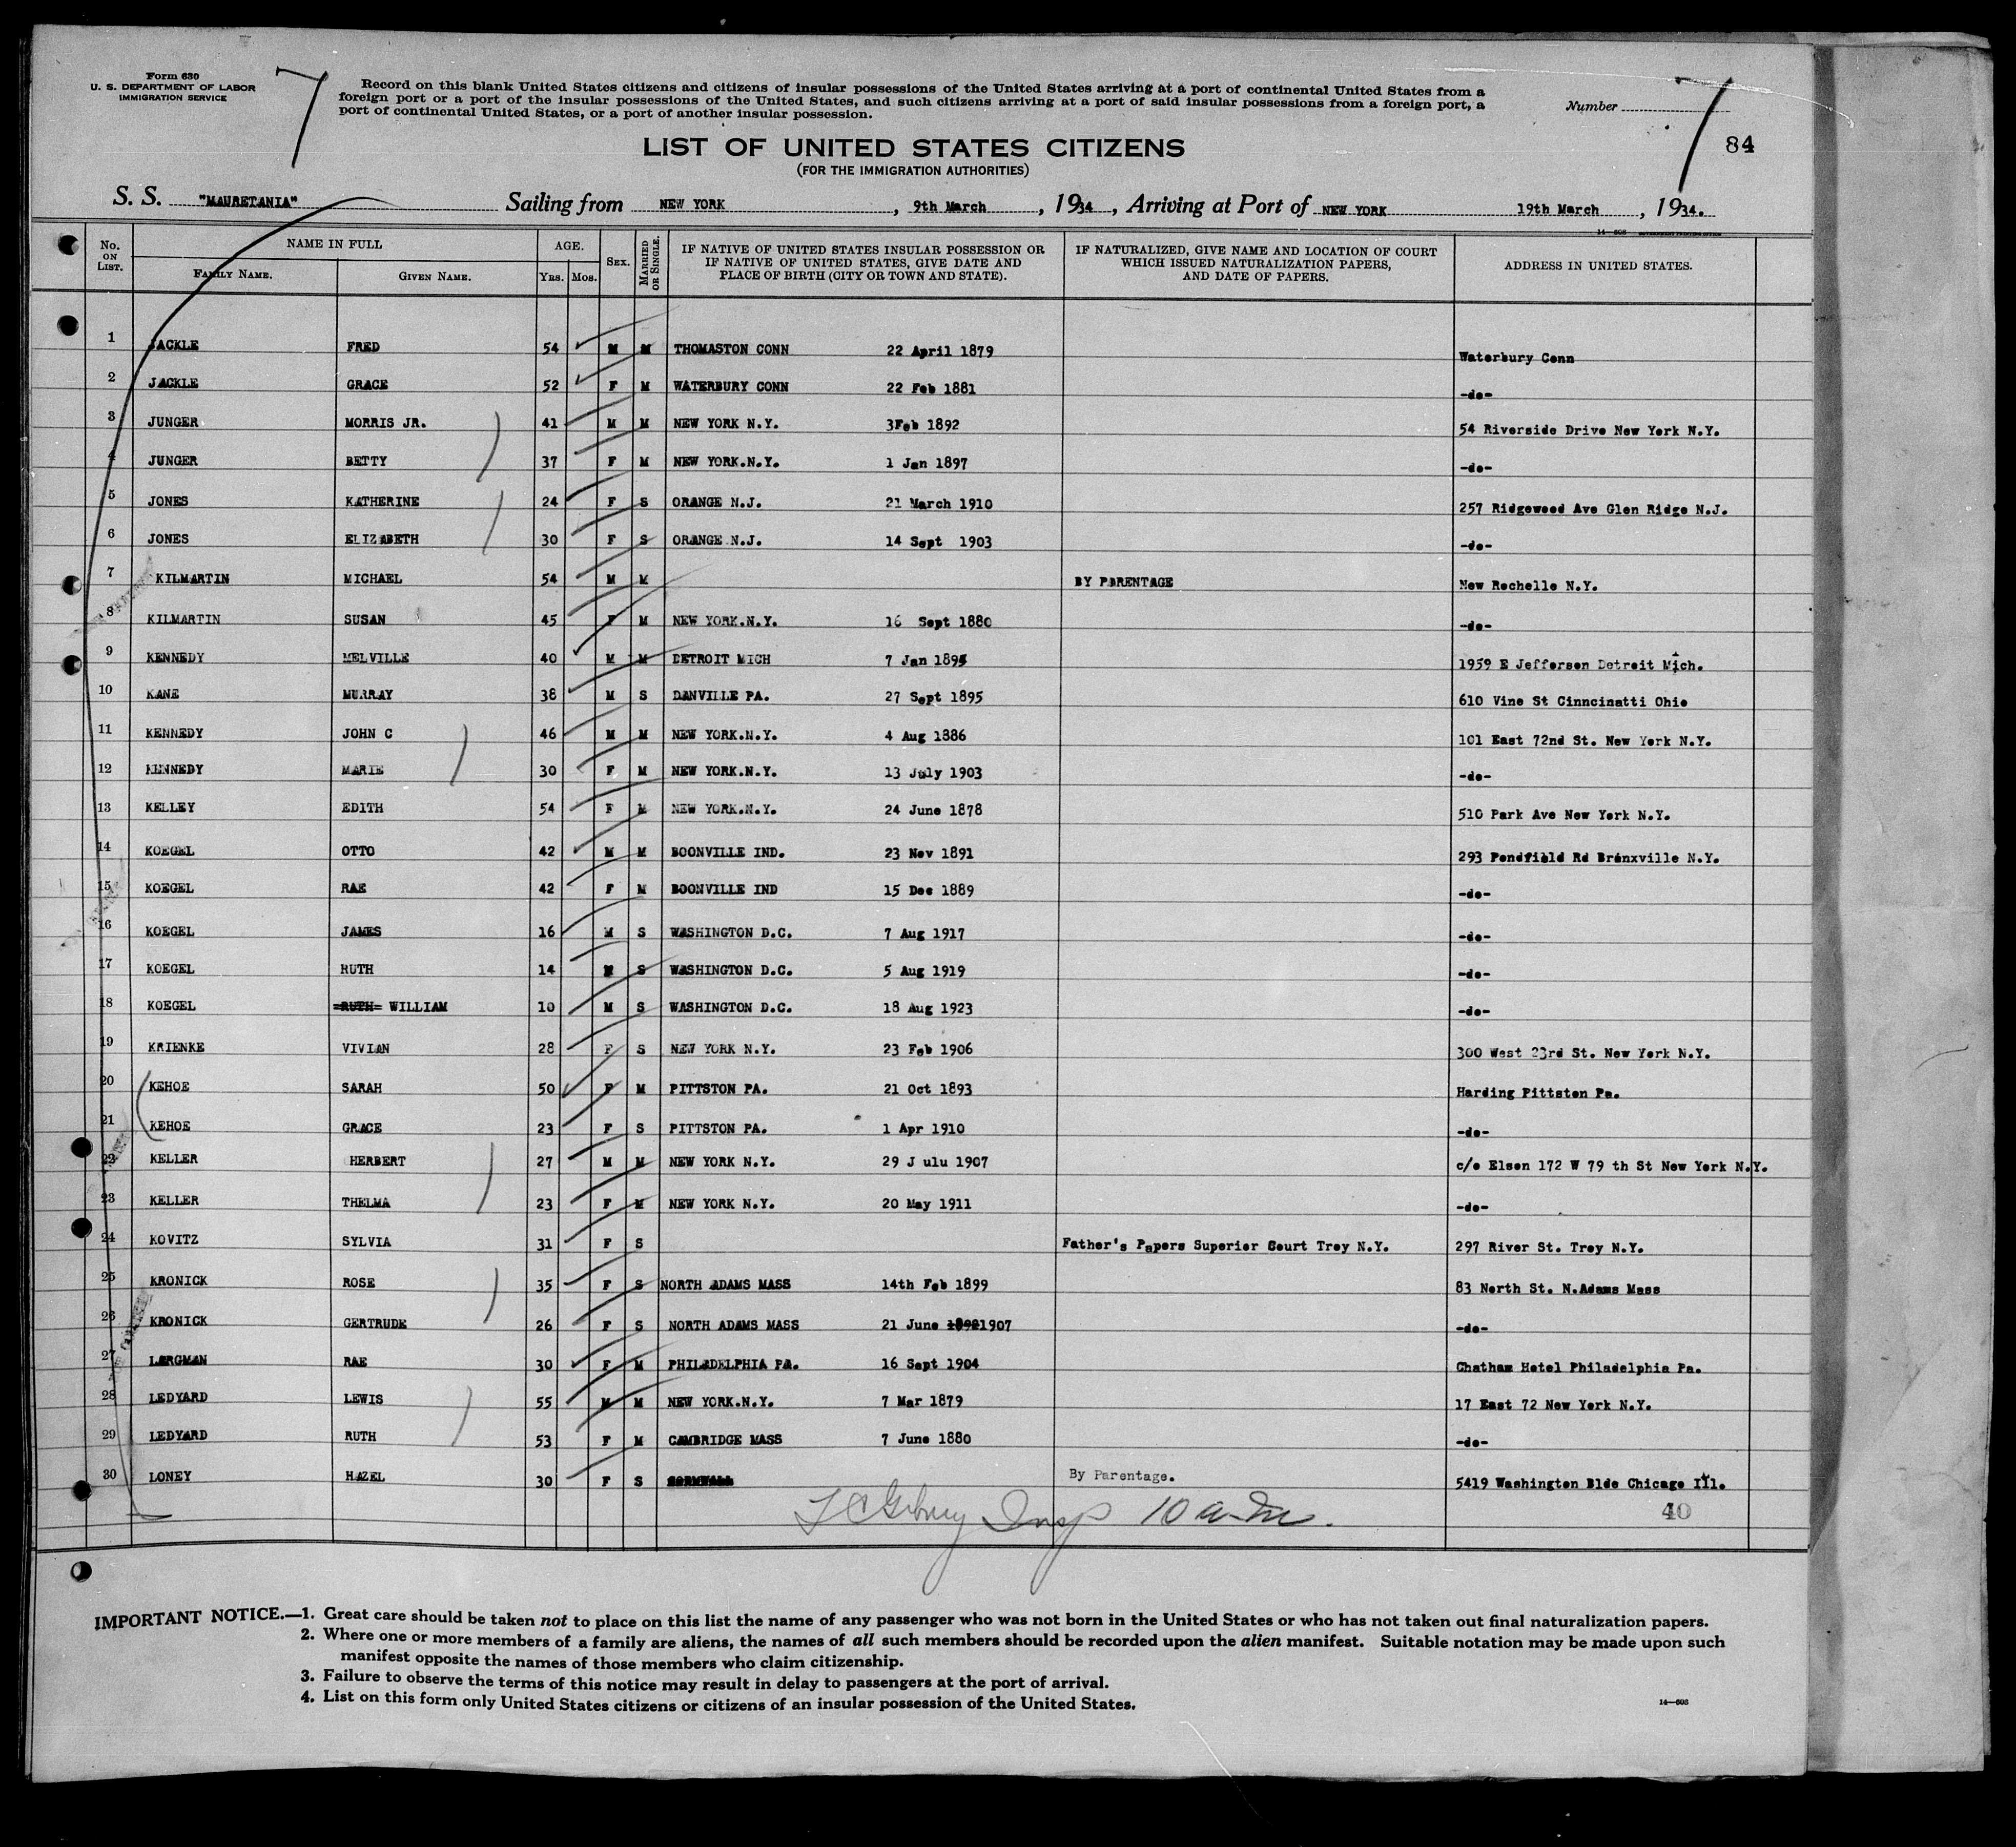 Form 630
U. S. DEPARTMENT OF LABOR
IMMIGRATION SERVICE
7
Record on this blank United States citizens and citizens of insular possessions of the United States arriving at a port of continental United States from a
foreign port or a port of the insular possessions of the United States, and such citizens arriving at a port of said insular possessions from a foreign port, a
port of continental United States, or a port of another insular possession.
Number
7
84
LIST OF UNITED STATES CITIZENS
(FOR THE IMMIGRATION AUTHORITIES)
S. S. "MAURETANIA" Sailing from NEW YORK, 9th March, 1934, Arriving at Port of NEW YORK 19th March, 1934.
No. ON LIST. NAME IN FULL FAMILY NAME. GIVEN NAME. AGE. Yrs. Mos. SEX. MARRIED OR SINGLE. IF NATIVE OF UNITED STATES INSULAR POSSESSION OR IF NATIVE OF UNITED STATES, GIVE DATE AND PLACE OF BIRTH (CITY OR TOWN AND STATE). IF NATURALIZED, GIVE NAME AND LOCATION OF COURT WHICH ISSUED NATURALIZATION PAPERS, AND DATE OF PAPERS. ADDRESS IN UNITED STATES.
1 JACKLE FRED 54 M M THOMASTON CONN 22 April 1879 Waterbury Conn
2 JACKLE GRACE 52 F M WATERBURY CONN 22 Feb 1881 -do-
3 JUNGER MORRIS JR. 41 M M NEW YORK N.Y. 3Feb 1892 54 Riverside Drive New York N.Y.
4 JUNGER BETTY 37 F M NEW YORK.N.Y. 1 Jan 1897 -do-
5 JONES KATHERINE 24 F S ORANGE N.J. 21 March 1910 257 Ridgewood Ave Glen Ridge N.J.
6 JONES ELIZABETH 30 F S ORANGE N.J. 14 Sept 1903 -do-
7 KILMARTIN MICHAEL 54 M M BY PARENTAGE New Rochelle N.Y.
8 KILMARTIN SUSAN 45 F M NEW YORK.N.Y. 16 Sept 1880 -do-
9 KENNEDY MELVILLE 40 M M DETROIT MICH 7 Jan 1894 1959 E Jefferson Detroit Mich.
10 KANE MURRAY 38 M S DANVILLE PA. 27 Sept 1895 610 Vine St Cinncinatti Ohio
11 KENNEDY JOHN C 46 M M NEW YORK.N.Y. 4 Aug 1886 101 East 72nd St. New York N.Y.
12 KENNEDY MARIE 30 F M NEW YORK.N.Y. 13 July 1903 -do-
13 KELLEY EDITH 54 F M NEW YORK.N.Y. 24 June 1878 510 Park Ave New York N.Y.
14 KOEGEL OTTO 42 M M BOONVILLE IND. 23 Nov 1891 293 Pondfield Rd Bronxville N.Y.
15 KOEGEL RAE 42 F M BOONVILLE IND 15 Dec 1889 -do-
16 KOEGEL JAMES 16 M S WASHINGTON D.C. 7 Aug 1917 -do-
17 KOEGEL RUTH 14 S WASHINGTON D.C. 5 Aug 1919 -do-
18 KOEGEL RUTH WILLIAM 10 M S WASHINGTON D.C. 18 Aug 1923 -do-
19 KRIENKE VIVIAN 28 F S NEW YORK N.Y. 23 Feb 1906 300 West 23rd St. New York N.Y.
20 KEHOE SARAH 50 F M PITTSTON PA. 21 Oct 1893 Harding Pittston Pa.
21 KEHOE GRACE 23 F S PITTSTON PA. 1 Apr 1910 -do-
22 KELLER HERBERT 27 M M NEW YORK N.Y. 29 J ulu 1907 c/o Elsen 172 W 79 th St New York N.Y.
23 KELLER THELMA 23 F M NEW YORK N.Y. 20 May 1911 -do-
24 KOVITZ SYLVIA 31 F S Father's Papers Superior Court Troy N.Y. 297 River St. Troy N.Y.
25 KRONICK ROSE 35 F S NORTH ADAMS MASS 14th Feb 1899 83 North St. N.Adams Mass
26 KRONICK GERTRUDE 26 F S NORTH ADAMS MASS 21 June 1907 -do-
27 LARGMAN RAE 30 F M PHILADELPHIA PA. 16 Sept 1904 Chatham Hotel Philadelphia Pa.
28 LEDYARD LEWIS 55 M M NEW YORK.N.Y. 7 Mar 1879 17 East 72 New York N.Y.
29 LEDYARD RUTH 53 F M CAMBRIDGE MASS 7 June 1880 -do-
30 LONEY HAZEL 30 F S CORNWALL By Parentage. 5419 Washington Blde Chicago Ill.
Insp 10 a.m.
40
IMPORTANT NOTICE.—1. Great care should be taken not to place on this list the name of any passenger who was not born in the United States or who has not taken out final naturalization papers.
2. Where one or more members of a family are aliens, the names of all such members should be recorded upon the alien manifest. Suitable notation may be made upon such
manifest opposite the names of those members who claim citizenship.
3. Failure to observe the terms of this notice may result in delay to passengers at the port of arrival.
4. List on this form only United States citizens or citizens of an insular possession of the United States.
14—608